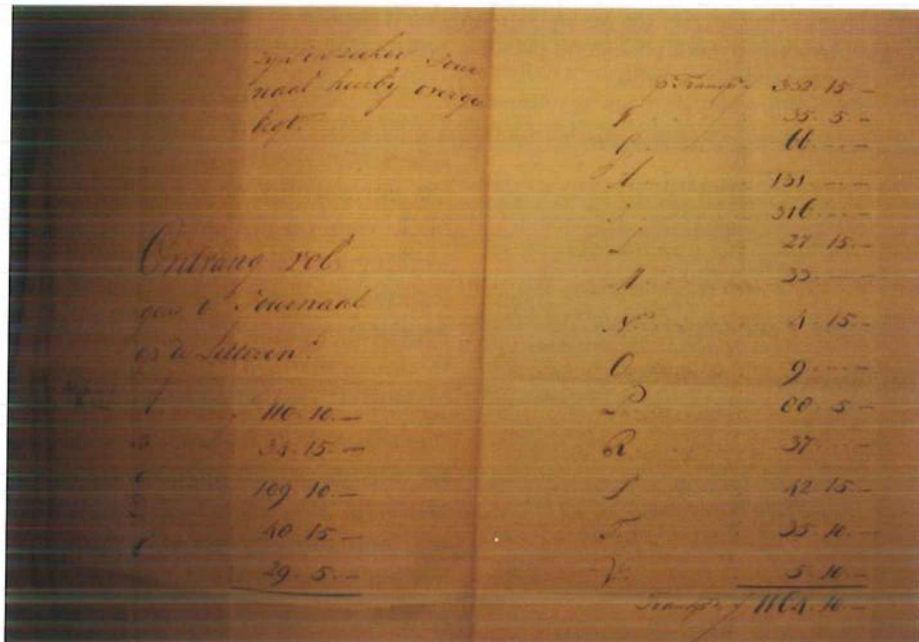 naal hierby overge
legt.
Ontvang vol
gens 't Journaal
op de Letteren
110.10.—
34.15.—
109.10.—
40.15.—
29.5.—
p Transpt 332.15.—
F 35.5.—
G 66.—
H 131.—
J 316.—
L 27.15.—
M 33.—
N 4.15.—
O 9.—
P 88.5.—
R 37.—
S 42.15.—
T 35.10.—
V 5.10.—
Transpt f 1164.10.—